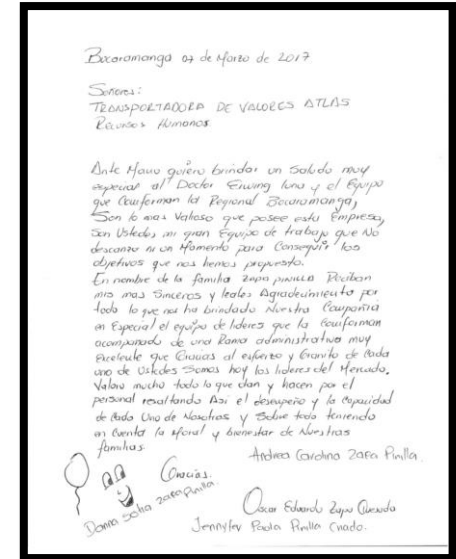 Bucaramanga 07 de Marzo de 2017
Señores:
TRANSPORTADORA DE VALORES ATLAS
Recursos Humanos.
Ante Mano quiero brindar un Saludo muy
especial al Doctor Erwing luna y el Equipo
que Conforman la Regional Bucaramanga,
Son lo mas Valioso que posee esta Empresa,
Son Ustedes mi gran Equipo de trabajo que No
descanza ni un Momento para Conseguir los
objetivos que nos hemos propuesto.
En nombre de la familia zapa pinilla Reciban
mis mas Sinceros y leales Agradecimiento por
todo lo que nos ha brindado Nuestra Compañia
en Especial el equipo de lideres que la Conforman
acompanado de una Rama administrativa muy
Excelente que Gracias al esfuerzo y Granito de Cada
uno de Ustedes Somos hoy los lideres del Mercado.
Valoro mucho todo lo que dan y hacen por el
personal resaltando Asi el desempeño y la Capacidad
de Cada Uno de Nosotros y Sobre todo teniendo
en Cuenta la Moral y bienestar de Nuestras
familias.
Andrea Carolina Zapa Pinilla.
Gracias.
Danna Sofia zapa Pinilla.
Oscar Eduardo Zapa Quesada
Jennyfer Paola Pinilla Criado.